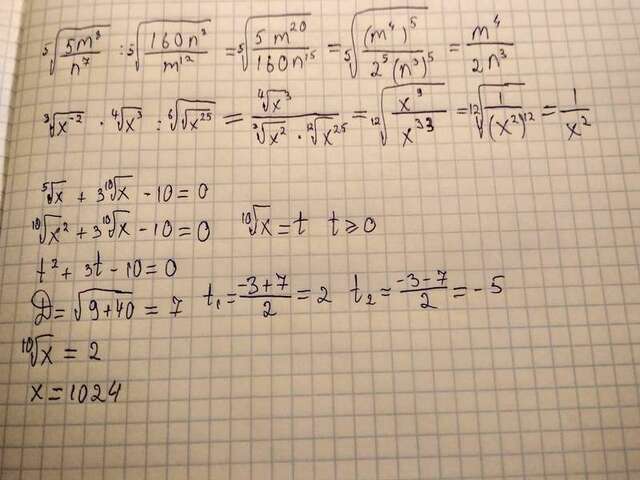 ⁵√(5m⁸/n⁷) : ⁵√(160n⁸/m¹²) = ⁵√(5m²⁰/160n¹⁵) = ⁵√((m⁴)⁵/2⁵(n³)⁵) = m⁴/2n³
³√x⁻² · ⁴√x³ : ⁶√√x²⁵ = ⁴√x³/(³√x² · ¹²√x²⁵) = ¹²√(x⁹/x³³) = ¹²√(1/(x²)¹²) = 1/x²
⁵√x + 3¹⁰√x - 10 = 0
¹⁰√x² + 3¹⁰√x - 10 = 0 ¹⁰√x = t t ≥ 0
t² + 3t - 10 = 0
D = √(9+40) = 7 t₁ = (-3+7)/2 = 2 t₂ = (-3-7)/2 = -5
¹⁰√x = 2
x = 1024